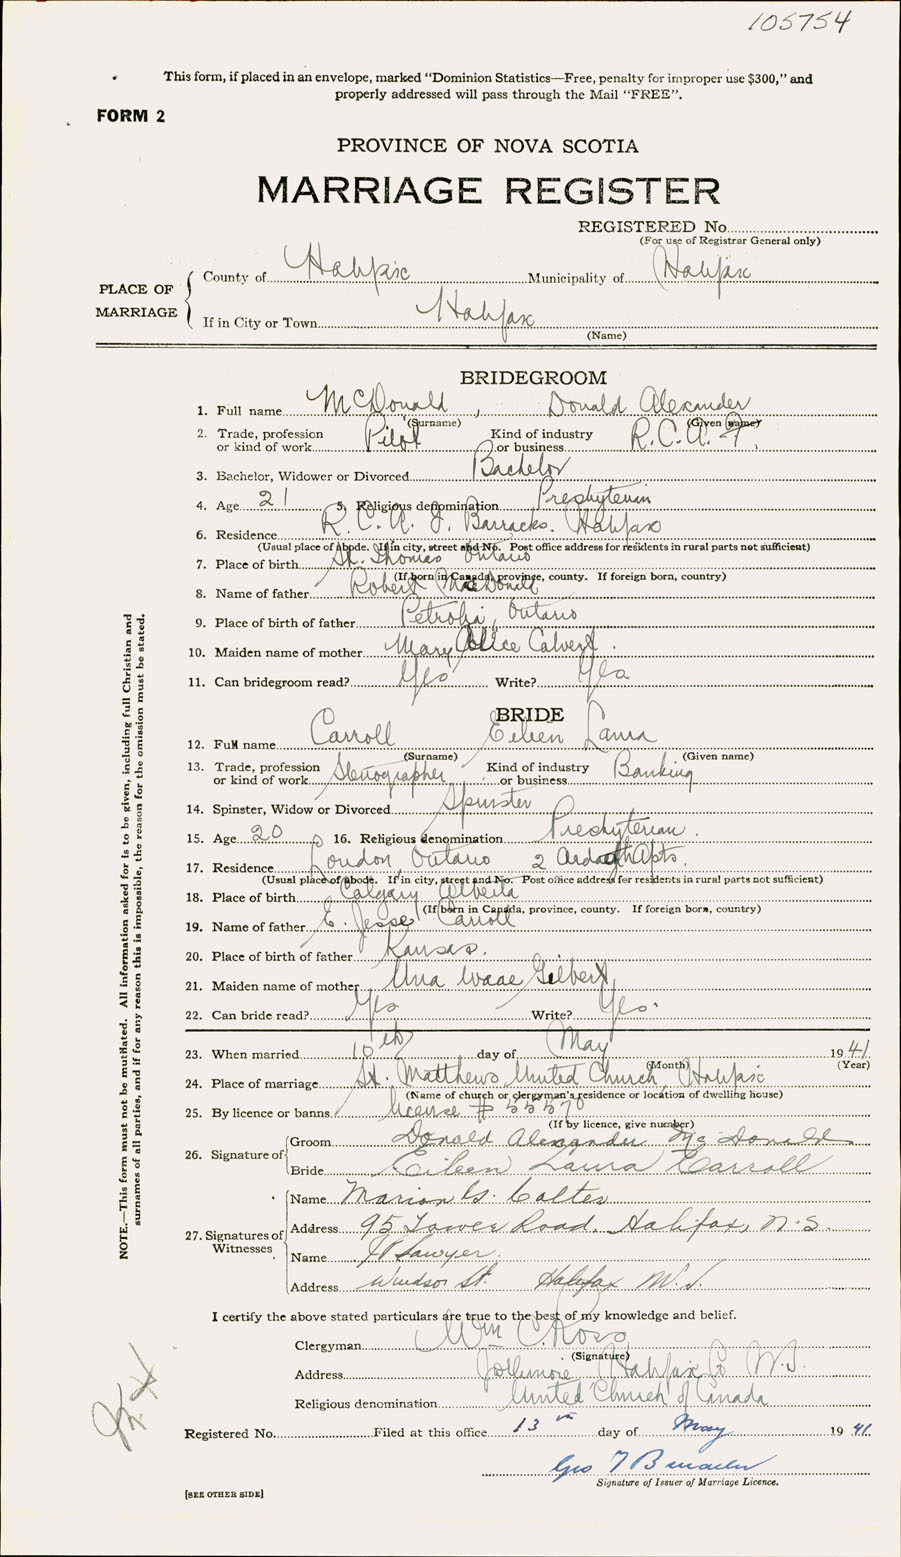 105754
This form, if placed in an envelope, marked "Dominion Statistics—Free, penalty for improper use $300," and
properly addressed will pass through the Mail "FREE".
FORM 2
PROVINCE OF NOVA SCOTIA
MARRIAGE REGISTER
REGISTERED No.
(For use of Registrar General only)
PLACE OF MARRIAGE
County of Halifax Municipality of Halifax
If in City or Town Halifax
(Name)
BRIDEGROOM
1. Full name McDonald, Donald Alexander
(Surname) (Given name)
2. Trade, profession or kind of work Pilot Kind of industry or business R.C.A.F.
3. Bachelor, Widower or Divorced Bachelor
4. Age 21 5. Religious denomination Presbyterian
6. Residence R.C.A.F. Barracks. Halifax
(Usual place of abode. If in city, street and No. Post office address for residents in rural parts not sufficient)
7. Place of birth St. Thomas Ontario
(If born in Canada, province, county. If foreign born, country)
8. Name of father Robert MacDonald
9. Place of birth of father Petrolia, Ontario
10. Maiden name of mother Mary Alice Calvert.
11. Can bridegroom read? Yes Write? Yes
BRIDE
12. Full name Carroll Eileen Laura
(Surname) (Given name)
13. Trade, profession or kind of work Stenographer Kind of industry or business Banking
14. Spinster, Widow or Divorced Spinster
15. Age 20 16. Religious denomination Presbyterian.
17. Residence London Ontario 2 Ardagh Apts.
(Usual place of abode. If in city, street and No. Post office address for residents in rural parts not sufficient)
18. Place of birth Calgary Alberta
(If born in Canada, province, county. If foreign born, country)
19. Name of father E. Jesse Carroll
20. Place of birth of father Kansas.
21. Maiden name of mother Una Gilbert
22. Can bride read? Yes Write? Yes.
23. When married 10th day of May 1941
(Month) (Year)
24. Place of marriage St. Matthews United Church, Halifax
(Name of church or clergyman's residence or location of dwelling house)
25. By licence or banns license # 55570
(If by licence, give number)
26. Signature of
Groom Donald Alexander McDonald
Bride Eileen Laura Carroll
27. Signatures of Witnesses
Name Marion G. Coltes
Address 95 Tower Road. Halifax, N.S.
Name Sawyer.
Address Windsor St. Halifax N.S.
I certify the above stated particulars are true to the best of my knowledge and belief.
Clergyman Wm C. Ross
(Signature)
Address Jollimore Halifax Co N.S.
Religious denomination United Church of Canada
Registered No. Filed at this office 13th day of May 1941.
Geo T
Signature of Issuer of Marriage Licence.
[SEE OTHER SIDE]
NOTE.—This form must not be mutilated. All information asked for is to be given, including full Christian and
surnames of all parties, and if for any reason this is impossible, the reason for the omission must be stated.